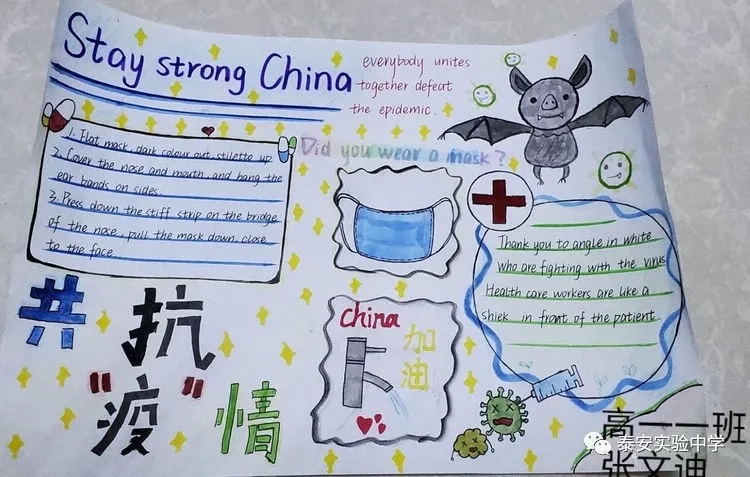 Stay strong China
everybody unites
together defeat
the epidemic.
1. Flat mask, dark colour out, stiletto up
2. Cover the nose and mouth, and hang the
ear bands on sides
3. Press down the stiff strip on the bridge
of the nose, pull the mask down, close
to the face.
Did you wear a mask?
Thank you to angle in white
who are fighting with the virus
Health care workers are like a
shiek in front of the patient.
China
加
油
共抗
"疫"情
高一一班
张文迪
泰安实验中学